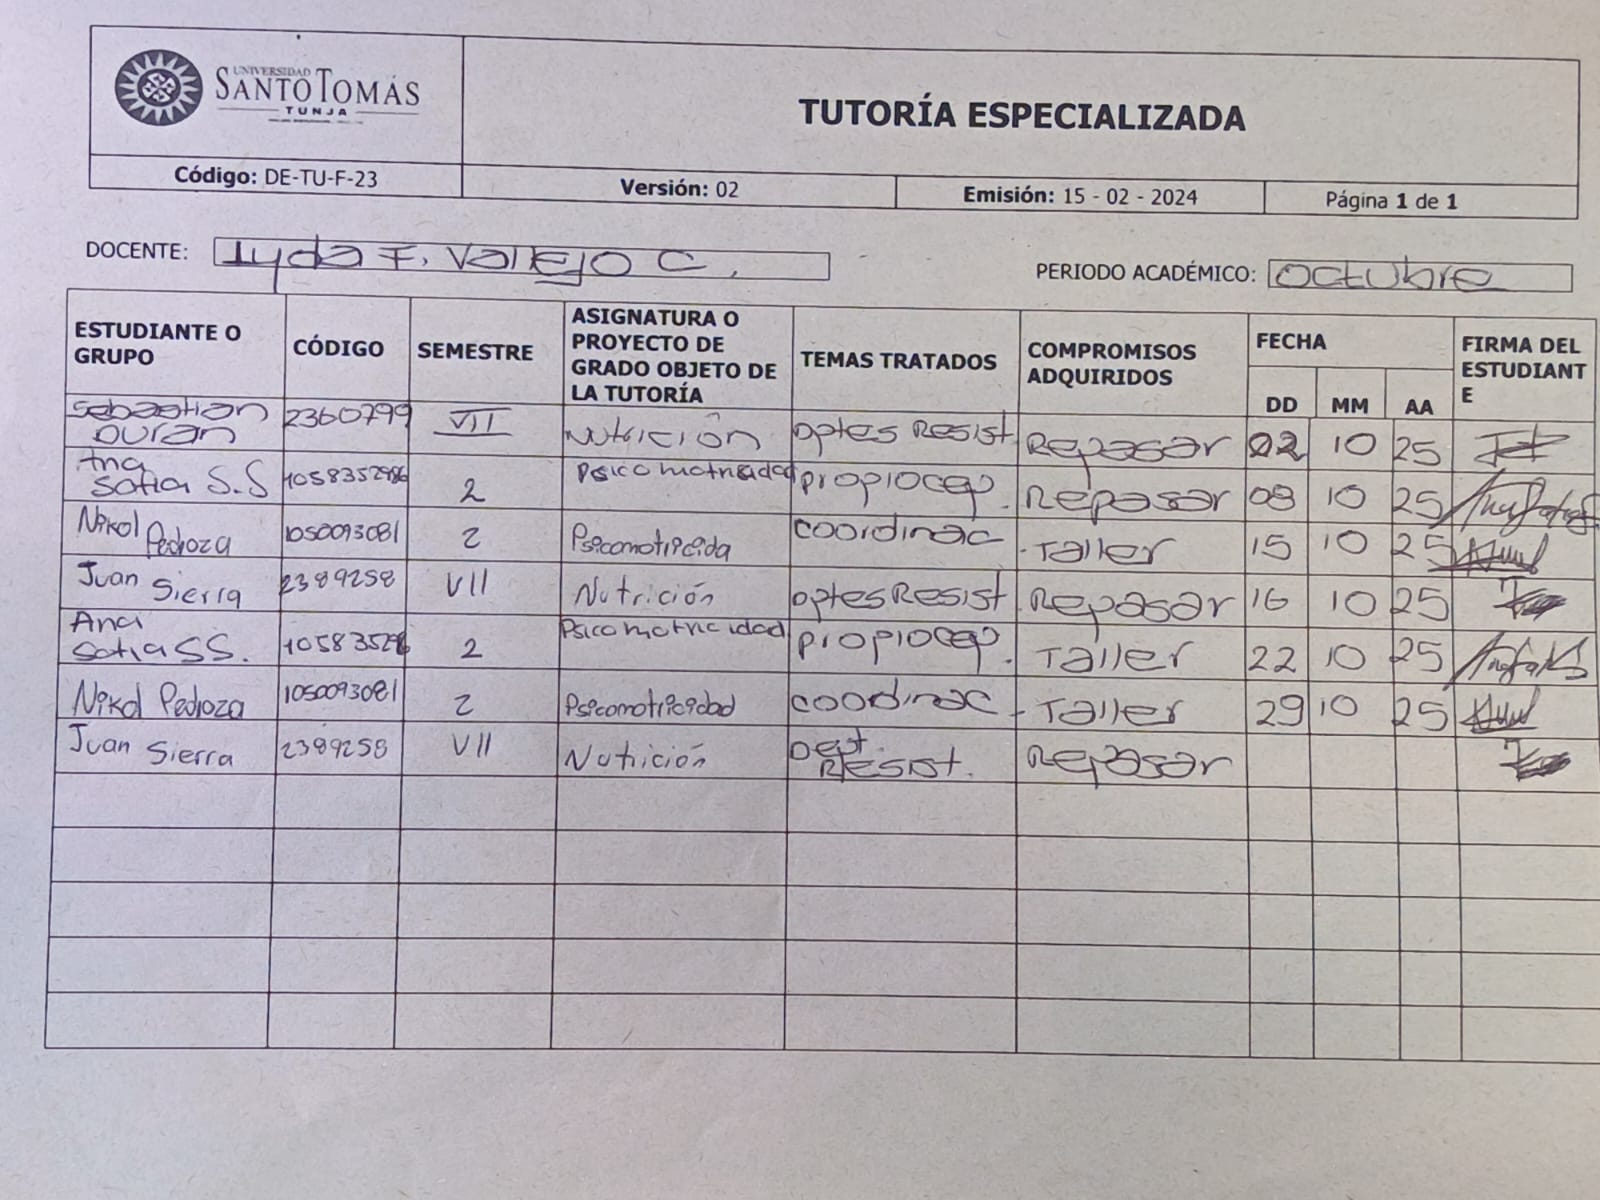 UNIVERSIDAD
SANTO TOMÁS
TUNJA
TUTORÍA ESPECIALIZADA
Código: DE-TU-F-23
Versión: 02
Emisión: 15 - 02 - 2024
Página 1 de 1
DOCENTE: Lyda F. Vallejo C.
PERIODO ACADÉMICO: octubre
ESTUDIANTE O GRUPO CÓDIGO SEMESTRE ASIGNATURA O PROYECTO DE GRADO OBJETO DE LA TUTORÍA TEMAS TRATADOS COMPROMISOS ADQUIRIDOS FECHA DD MM AA FIRMA DEL ESTUDIANTE
Sebastian Duran 2360799 VII Nutrición Dptes Resist. Repasar 02 10 25
Ana Sofia S.S 1058352986 2 Psicomotrisidad propiocep. Repasar 08 10 25
Nikol Pedroza 1050093081 2 Psicomotricida coordinac - Taller 15 10 25
Juan Sierra 2389258 VII Nutrición Dptes Resist. Repasar 16 10 25
Ana Sofia SS. 2 Psicomotricidad propiocep. Taller 22 10 25
Nikol Pedroza 1050093081 2 Psicomotricidad coordinac - Taller 29 10 25
Juan Sierra 2389258 VII Nutrición Dept. Resist. Repasar